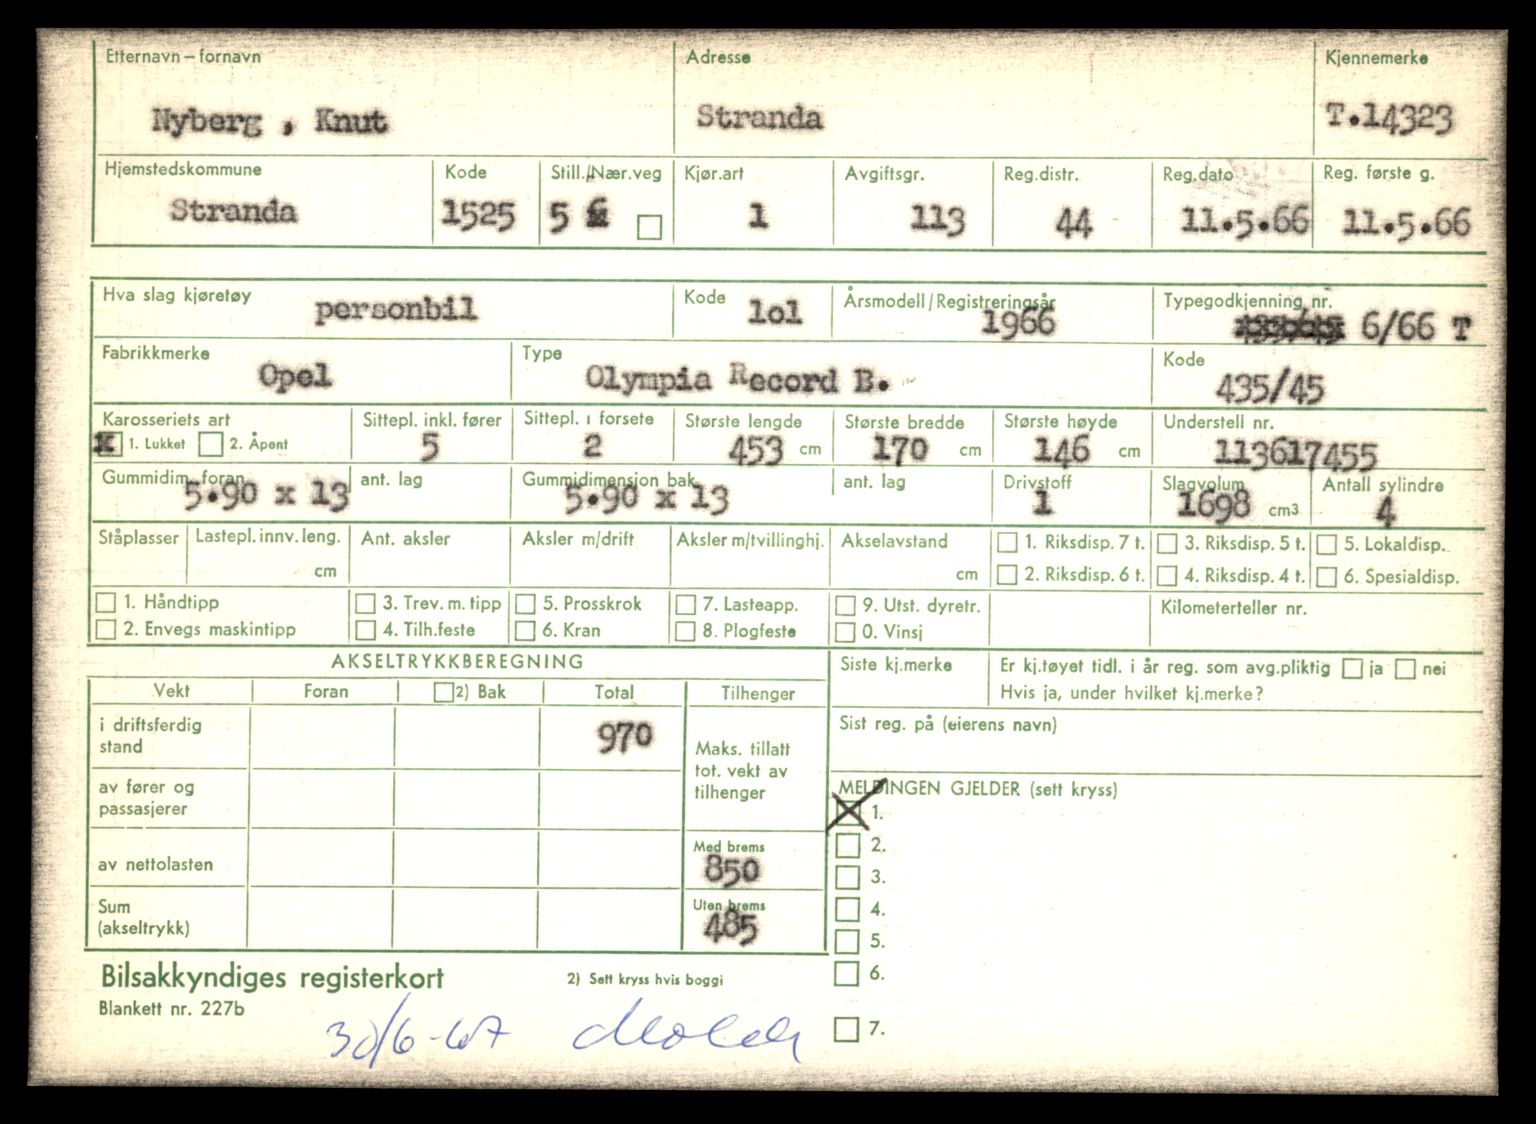 Etternavn – fornavn Adresse Kjennemerke
Nyberg , Knut Stranda T.14323
Hjemstedskommune Kode Still./Nær.veg Kjør.art Avgiftsgr. Reg.distr. Reg.dato Reg. første g.
Stranda 1525 5 1 113 44 11.5.66 11.5.66
Hva slag kjøretøy Kode Årsmodell/Registreringsår Typegodkjenning nr.
personbil lol 1966 6/66 T
Fabrikkmerke Type Kode
Opel Olympia Record B. 435/45
Karosseriets art Sittepl. inkl. fører Sittepl. i forsete Største lengde Største bredde Største høyde Understell nr.
X 1. Lukket 2. Åpent 5 2 453 cm 170 cm 146 cm 113617455
Gummidim. foran ant. lag Gummidimension bak ant. lag Drivstoff Slagvolum Antall sylindre
5.90 x 13 5.90 x 13 1 1698 cm3 4
Ståplasser Lastepl. innv. leng. Ant. aksler Aksler m/drift Aksler m/tvillinghj. Akselavstand 1. Riksdisp. 7 t. 3. Riksdisp. 5 t. 5. Lokaldisp.
cm cm 2. Riksdisp. 6 t. 4. Riksdisp. 4 t. 6. Spesialdisp.
1. Håndtipp 3. Trev. m. tipp 5. Prosskrok 7. Lasteapp. 9. Utst. dyretr. Kilometerteller nr.
2. Envegs maskintipp 4. Tilh.feste 6. Kran 8. Plogfeste 0. Vinsj
AKSELTRYKKBEREGNING Siste kj.merke Er kj.tøyet tidl. i år reg. som avg.pliktig ja nei
Hvis ja, under hvilket kj.merke?
Vekt Foran 2) Bak Total Tilhenger
Sist reg. på (eierens navn)
i driftsferdig stand 970
Maks. tillatt tot. vekt av tilhenger
av fører og passasjerer
MELDINGEN GJELDER (sett kryss)
X 1.
2.
av nettolasten Med brems
850
3.
Sum (akseltrykk) Uten brems
485
4.
5.
6.
Bilsakkyndiges registerkort 2) Sett kryss hvis boggi
Blankett nr. 227b
30/6-67
7.